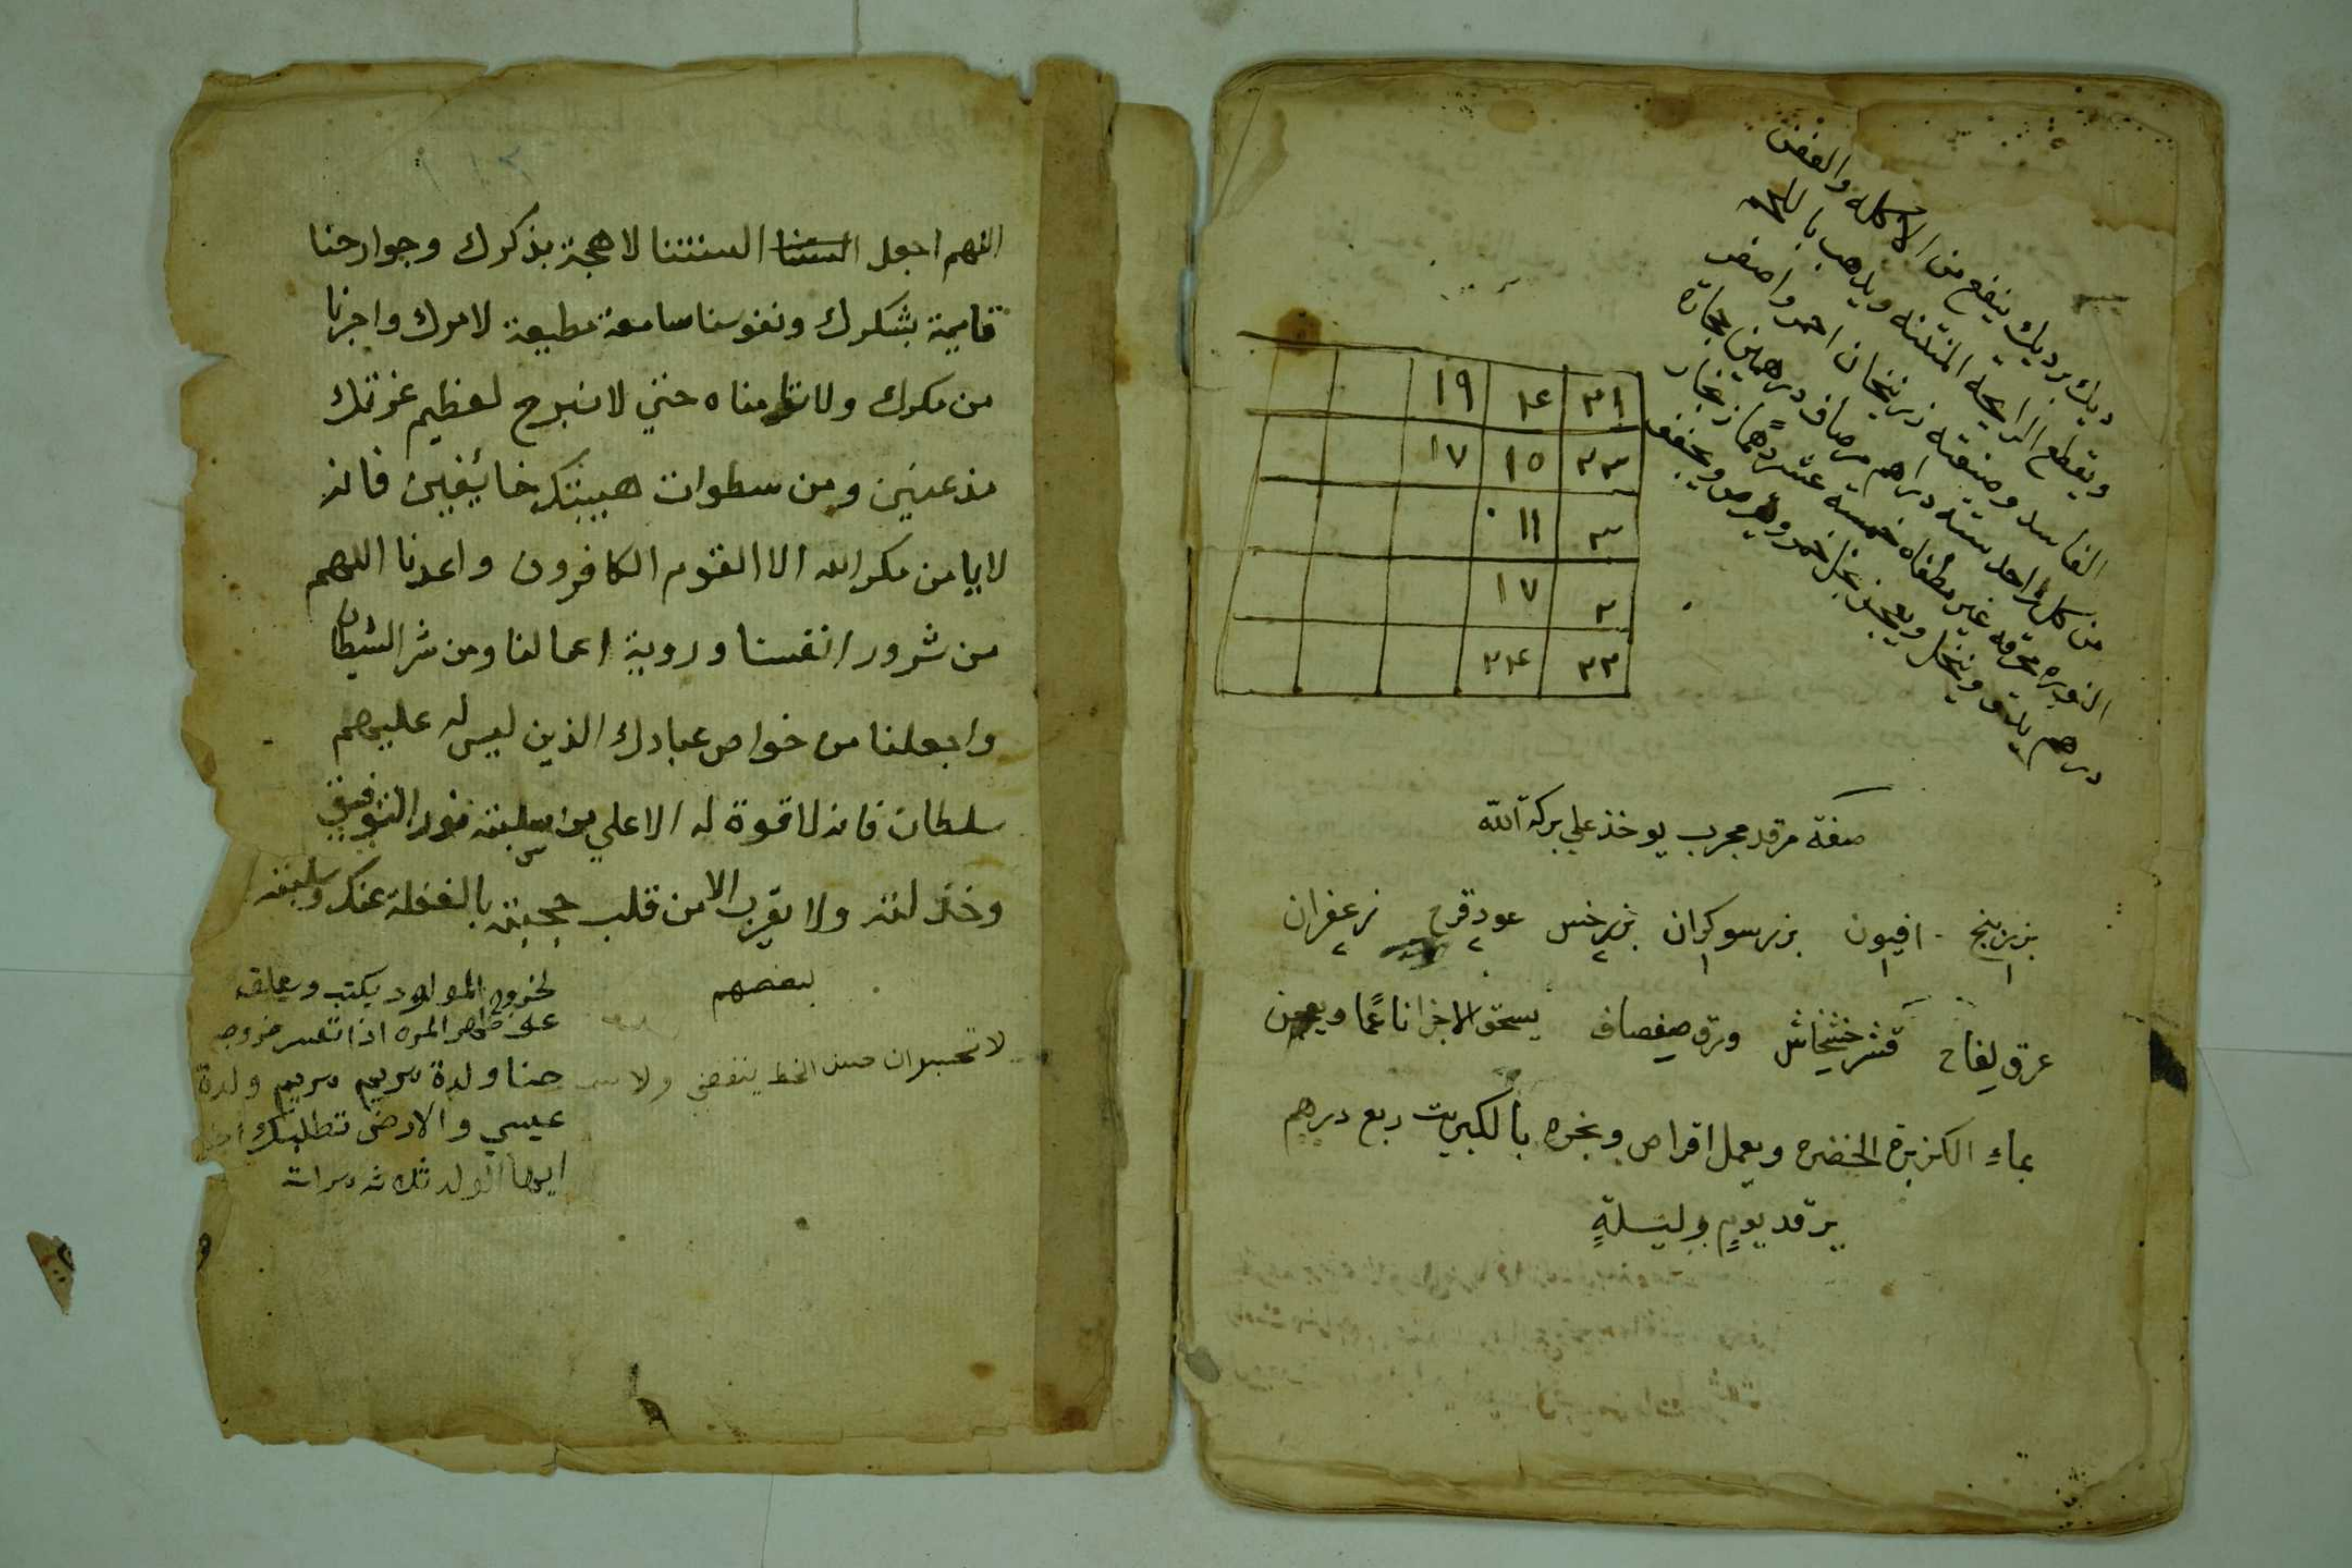 ديك برديك ينفع من الاكله والعفن
ويقطع الرايحه المنتنه ويذهب باللحم
الفاسد وصنعته زرنيخان احمر واصفر
من كل واحد ستة دراهم مرصاف درهمين حجارة
النوره محرقه غير مطفاه خمسة عشر درهما زنجار
درهم يدق وينخل ويعجن بخل خمر ويقرص ويجفف
٣١ ١٤ ١٩
٣٣ ١٥ ١٧
٣ ١١
٢ ١٧
٣٣ ٣٤
صفة مرقد مجرب يوخذ علي بركة الله
بزر بنج افيون بزر سوكران بزر خس عود قرح زعفران
١ ١ ١ ٢ ٢ ٢
عرق لفاح قشر خشخاش ورق صفصاف يسحق الاجزا ناعمًا ويعجن
بماءِ الكزبرة الخضره ويعمل اقراص وبخره بالكبريت ربع درهم
يرقد يومٍ وليسلةٍ
اللهم اجعل السنتنا السنتنا لاهجة بذكرك وجوارحنا
قايمة بشكرك ونفوسنا سامعة مطيعة لامرك واجرنا
من مكرك ولا تامناه حتي لا نبرح لعظيم عزتك
مذعنين ومن سطوات هيبتك خائفين فانه
لا يامن مكر الله الا القوم الكافرون واعذنا اللهم
من شرور انفسنا وروية اعمالنا ومن شر الشيطان
واجعلنا من خواص عبادك الذين ليس له عليهم
سلطان فانه لا قوة له الا علي من سلبته نور التوفيق
وخذلته ولا يقرب الا من قلب حجبته بالغفلة عنك وسلبته
بعضهم
لا تحسبوان حسن الخط ينفعني ولا
لخروج المولود يكتب ويعلق
علي ظاهر المره اذا تعسر خروجه
حنا ولدة مريم مريم ولدة
عيسي والارض تطلبك
ايها الولد ثلاثه مرات